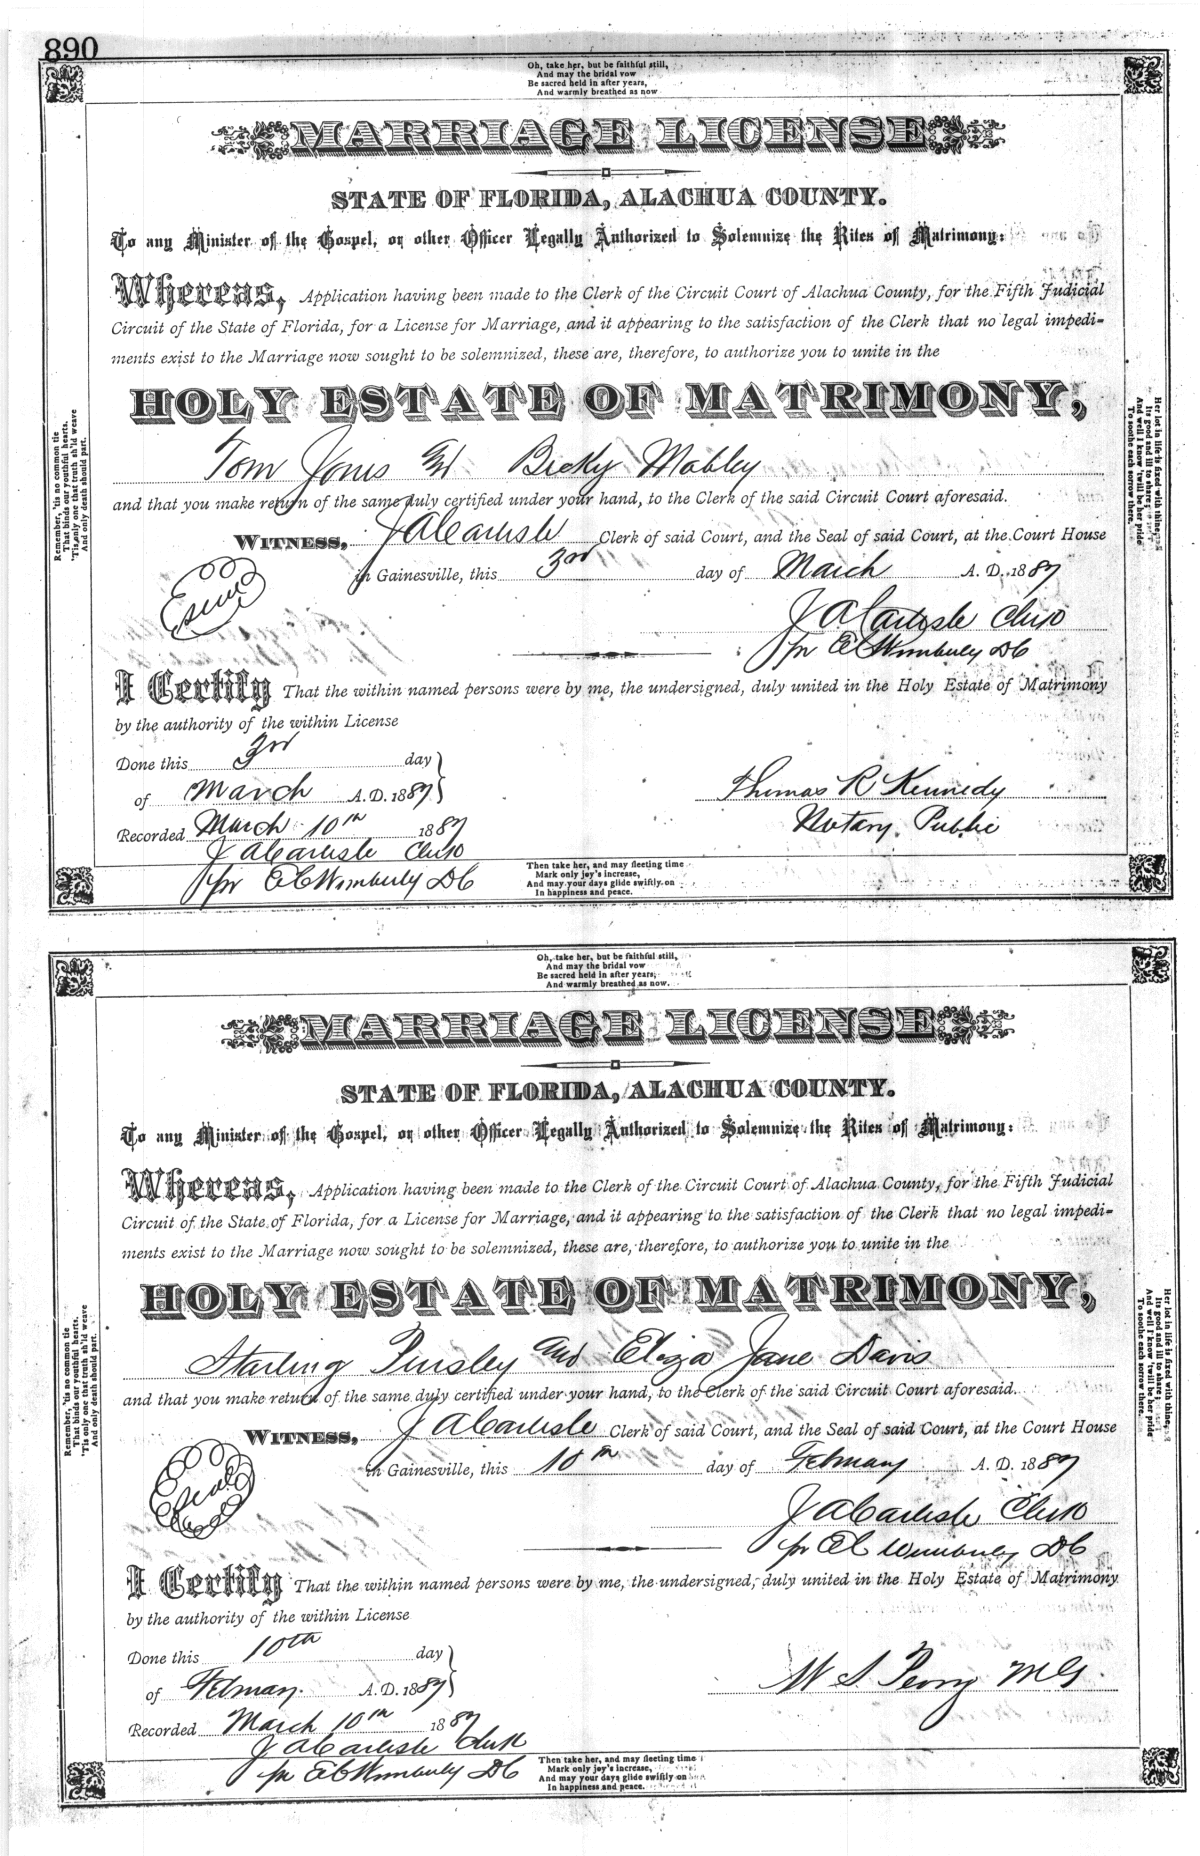 890
Oh, take her, but be faithful still,
And may the bridal vow
Be sacred held in after years,
And warmly breathed as now
MARRIAGE LICENSE
STATE OF FLORIDA, ALACHUA COUNTY.
To any Minister of the Gospel, or other Officer Legally Authorized to Solemnize the Rites of Matrimony:
Whereas, Application having been made to the Clerk of the Circuit Court of Alachua County, for the Fifth Judicial
Circuit of the State of Florida, for a License for Marriage, and it appearing to the satisfaction of the Clerk that no legal impedi-
ments exist to the Marriage now sought to be solemnized, these are, therefore, to authorize you to unite in the
HOLY ESTATE OF MATRIMONY,
Tom Jones and Becky Mobley
and that you make return of the same duly certified under your hand, to the Clerk of the said Circuit Court aforesaid.
WITNESS, J A Carlisle Clerk of said Court, and the Seal of said Court, at the Court House
in Gainesville, this 3rd day of March A. D. 1887
J A Carlisle Clerk
pr E C Wimberly DC
I Certify That the within named persons were by me, the undersigned, duly united in the Holy Estate of Matrimony
by the authority of the within License
Done this 3rd day
of March A.D. 1887
Thomas R Kennedy
Notary Public
Recorded March 10th 1887
J A Carlisle Clerk
pr E C Wimberly DC
Remember, 'tis no common tie
That binds our youthful hearts.
'Tis only one that truth sh'ld weave
And only death should part.
Her lot in life is fixed with thine,
Its good and ill to share
And well I know 'twill be her pride
To soothe each sorrow there.
Then take her, and may fleeting time
Mark only joy's increase,
And may your days glide swiftly on
In happiness and peace.
Oh, take her, but be faithful still,
And may the bridal vow
Be sacred held in after years,
And warmly breathed as now.
MARRIAGE LICENSE
STATE OF FLORIDA, ALACHUA COUNTY.
To any Minister of the Gospel, or other Officer Legally Authorized to Solemnize the Rites of Matrimony:
Whereas, Application having been made to the Clerk of the Circuit Court of Alachua County, for the Fifth Judicial
Circuit of the State of Florida, for a License for Marriage, and it appearing to the satisfaction of the Clerk that no legal impedi-
ments exist to the Marriage now sought to be solemnized, these are, therefore, to authorize you to unite in the
HOLY ESTATE OF MATRIMONY,
Starling Pinsley and Eliza Jane Davis
and that you make return of the same duly certified under your hand, to the Clerk of the said Circuit Court aforesaid.
WITNESS, J A Carlisle Clerk of said Court, and the Seal of said Court, at the Court House
Seal
in Gainesville, this 10th day of February A. D. 1887
J A Carlisle Clerk
pr E C Wimberly DC
I Certify That the within named persons were by me, the undersigned, duly united in the Holy Estate of Matrimony
by the authority of the within License
Done this 10th day
of February A.D. 1887
W S Perry MG
Recorded March 10th 1887
J A Carlisle Clerk
pr E C Wimberly DC
Remember, 'tis no common tie
That binds our youthful hearts.
'Tis only one that truth sh'ld weave
And only death should part.
Her lot in life is fixed with thine,
Its good and ill to share
And well I know 'twill be her pride
To soothe each sorrow there.
Then take her, and may fleeting time
Mark only joy's increase,
And may your days glide swiftly on
In happiness and peace.